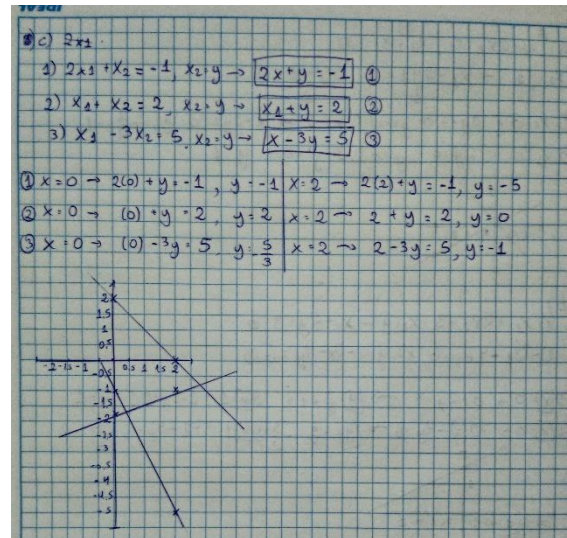 IDEAL
c) 2x1.
1) 2x1 + x2 = -1, x2=y → 2x+y = -1 ①
2) x1 + x2 = 2, x2=y → x1+y = 2 ②
3) x1 - 3x2 = 5, x2=y → x-3y = 5 ③
① x=0 → 2(0) + y = -1, y = -1 | x=2 → 2(2)+y = -1, y = -5
② x=0 → (0) + y = 2, y = 2 | x=2 → 2 + y = 2, y = 0
③ x=0 → (0) - 3y = 5 y = -5/3 | x=2 → 2-3y = 5, y = -1
2
1.5
1
0.5
-2 -1.5 -1 0.5 1 1.5 2
-0.5
-1
-1.5
-2
-2.5
-3
-3.5
-4
-4.5
-5